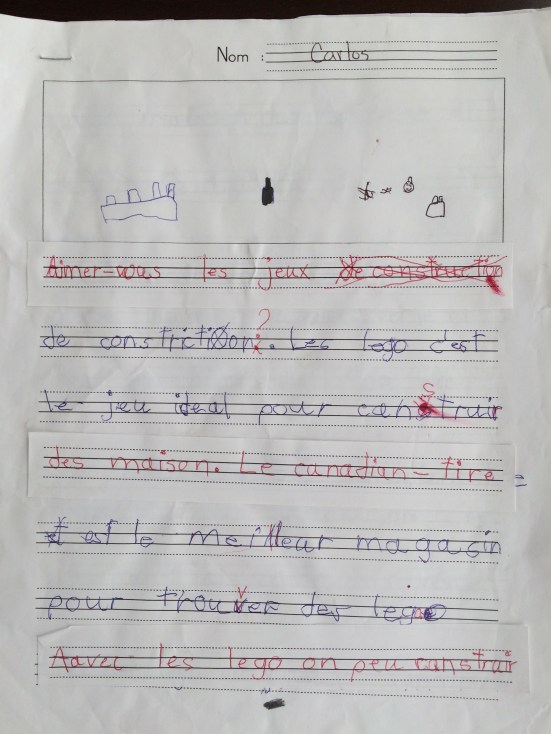 Nom : Carlos
Aimer-vous les jeux de construction
de constriction? . Les lego c'est
le jeu ideal pour construir
des maison. Le canadian-tire =
est le meilleur magasin
pour trouver des lego
Aavec les lego on peu canstruir